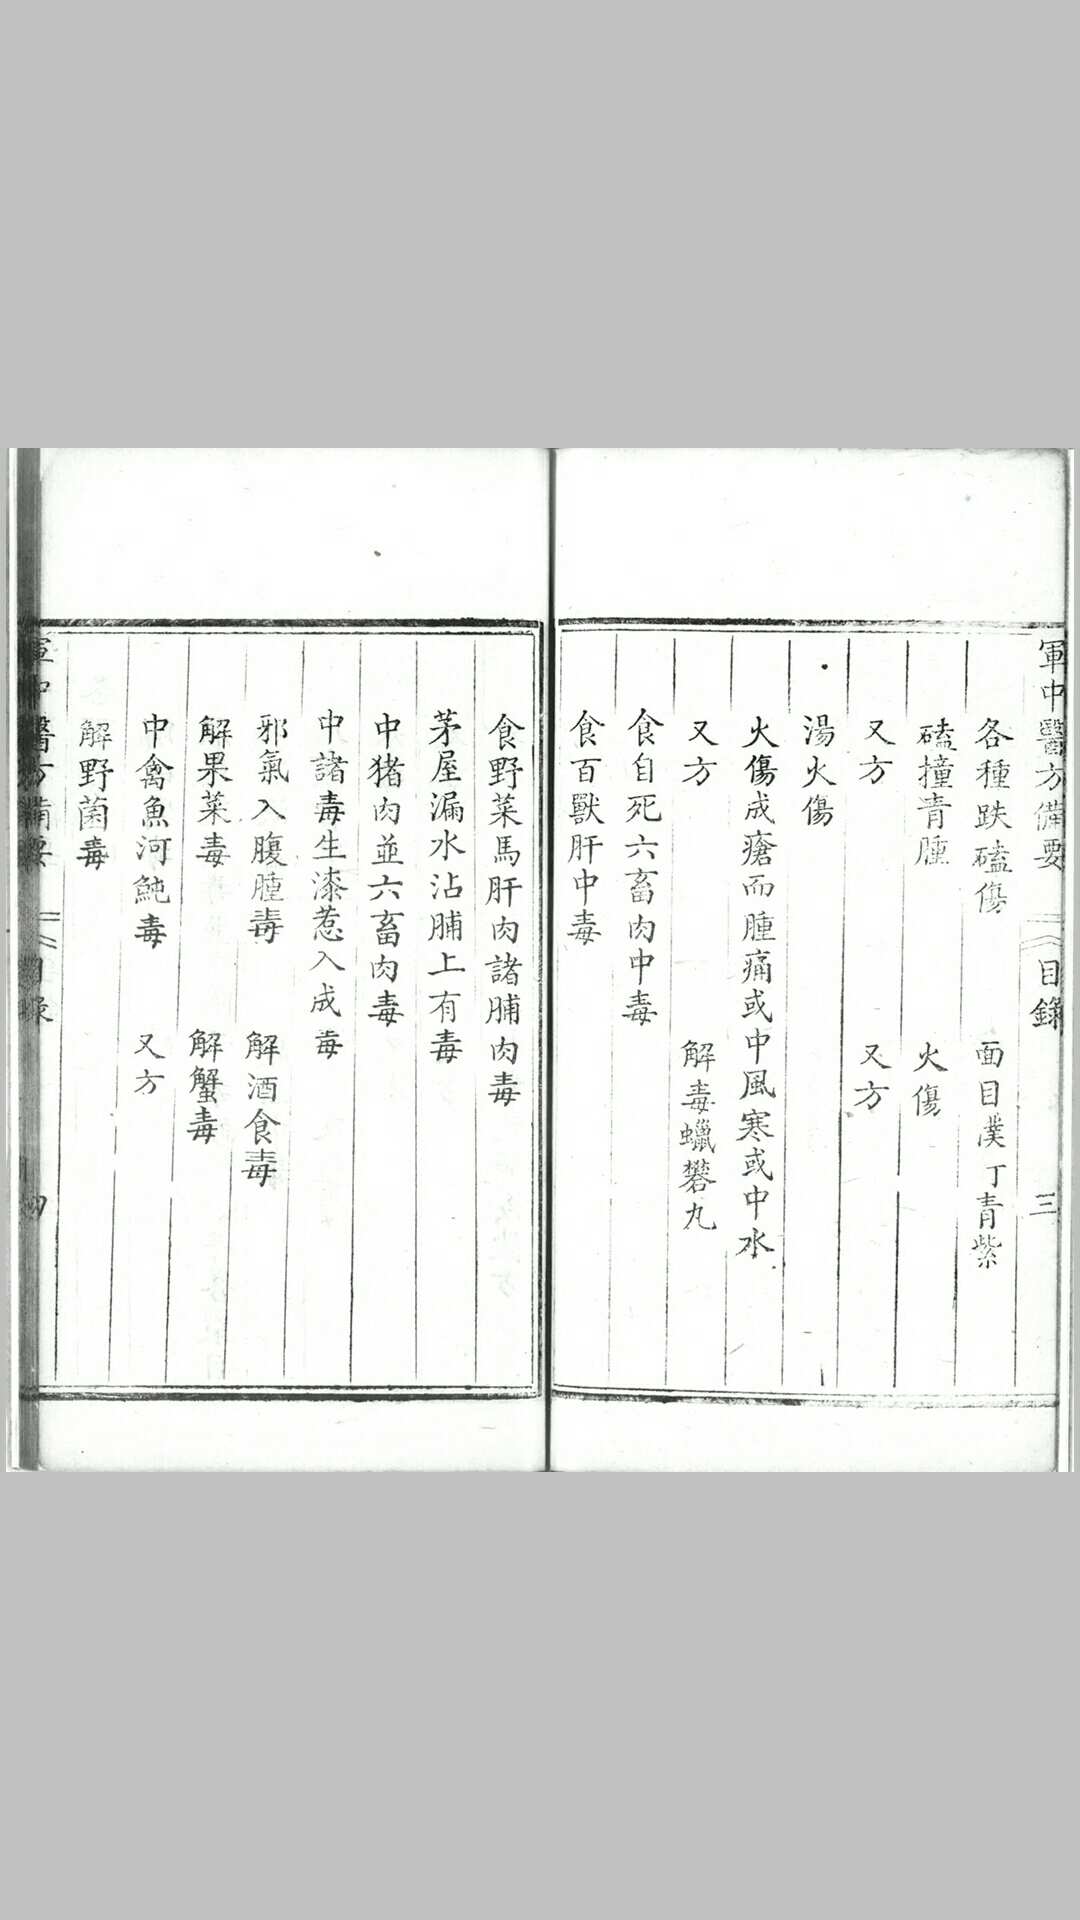 軍中醫方備要 目錄 三
各種跌磕傷 面目濮丁青紫
磕撞青腫 火傷
又方 又方
湯火傷
火傷成瘡而腫痛或中風寒或中水
又方 解毒蠟礬丸
食自死六畜肉中毒
食百獸肝中毒
食野菜馬肝肉諸脯肉毒
茅屋漏水沾脯上有毒
中猪肉並六畜肉毒
中諸毒生漆惹入成毒
邪氣入腹腫毒 解酒食毒
解果菜毒 解蟹毒
中禽魚河魨毒 又方
解野菌毒
軍中醫方備要 目錄 四